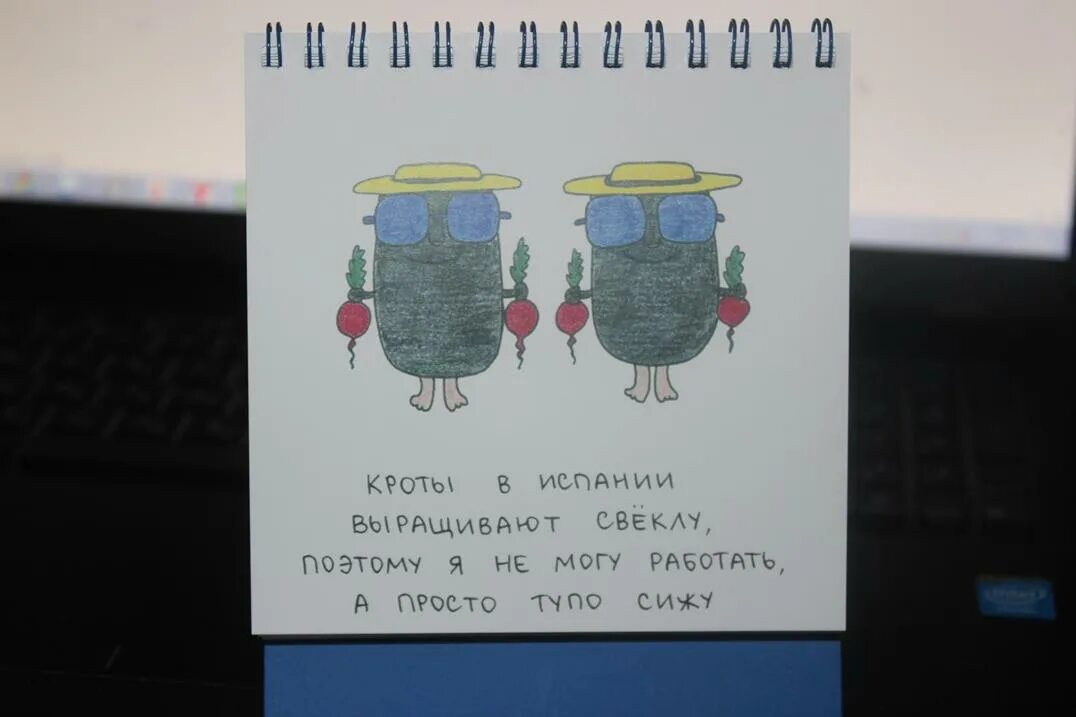 КРОТЫ В ИСПАНИИ
ВЫРАЩИВАЮТ СВЁКЛУ,
ПОЭТОМУ Я НЕ МОГУ РАБОТАТЬ,
А ПРОСТО ТУПО СИЖУ